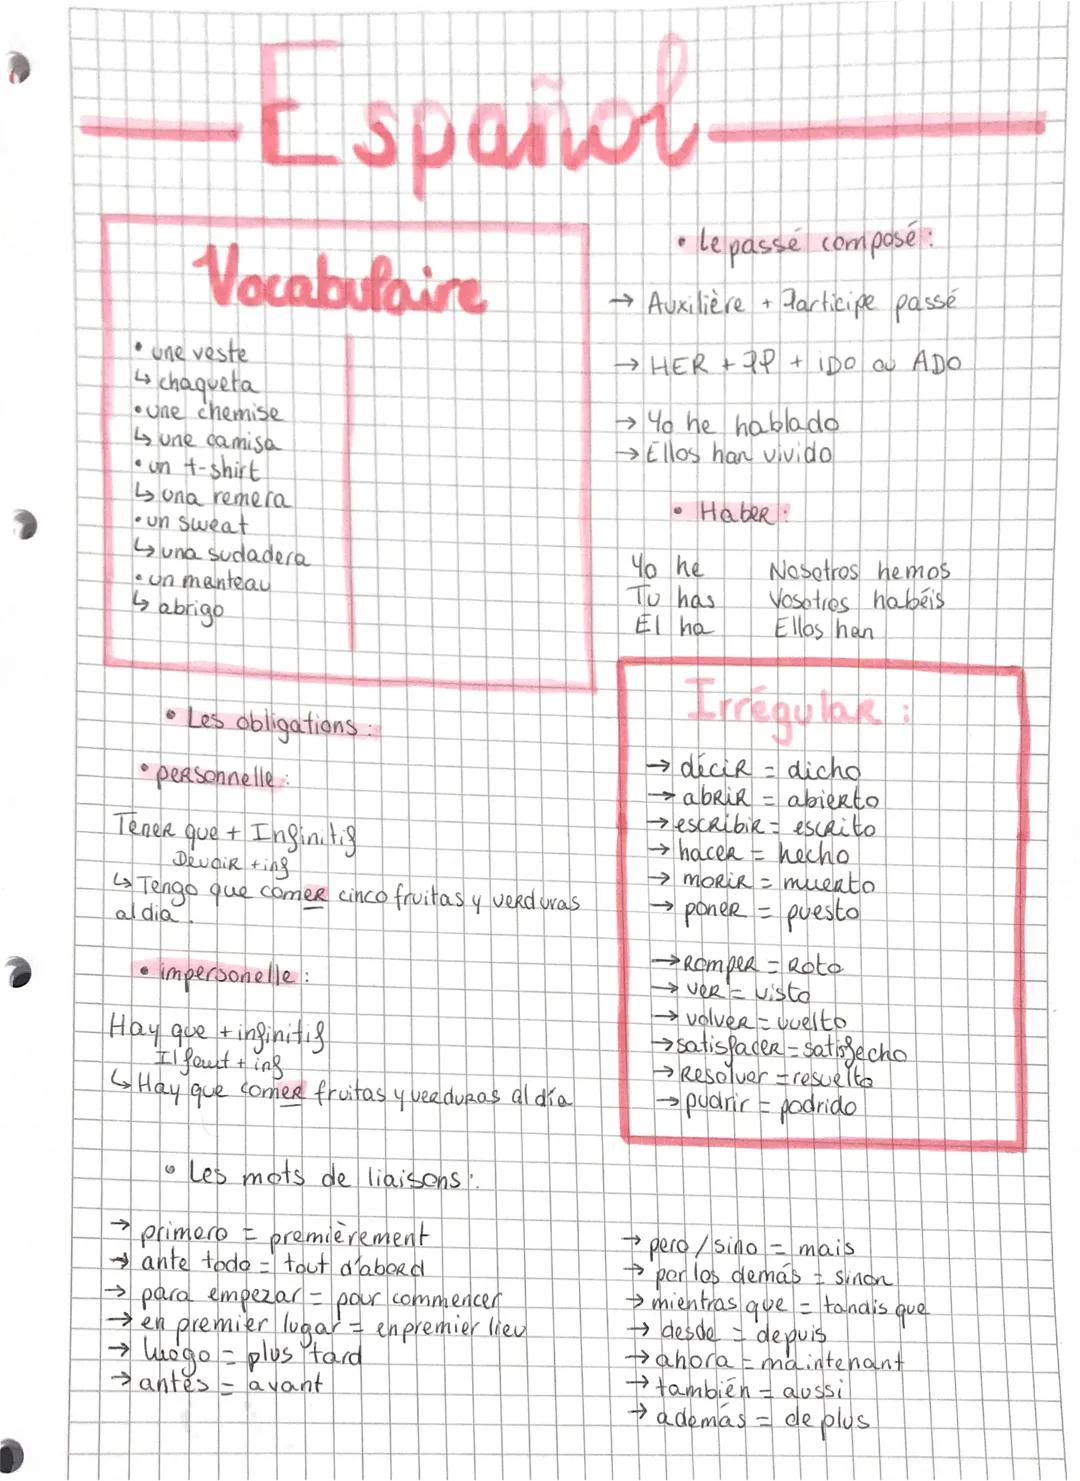 Español
Vocabulaire
• une veste
↳ chaqueta
• une chemise
↳ une camisa
• un t-shirt
↳ una remera
• un sweat
↳ una sudadera
• un manteau
↳ abrigo
• Le passé composé :
→ Auxilière + Participe passé
→ HER + PP + iDO ou ADO
→ Yo he hablado
→ Ellos han vivido
• Haber :
Yo he Nosotros hemos
Tu has Vosotros habéis
El ha Ellos han
• Les obligations :
• personnelle :
Tener que + Infinitif
Devoir + inf
↳ Tengo que comer cinco fruitas y verduras
al dia.
• impersonelle :
Hay que + infinitif
Il faut + inf
↳ Hay que comer fruitas y verduras al día
Irrégular :
→ décir = dicho
→ abrir = abierto
→ escribir = escrito
→ hacer = hecho
→ morir = muerto
→ poner = puesto
→ Romper = Roto
→ ver = visto
→ volver = vuelto
→ satisfacer = satisfecho
→ Resolver = resuelto
→ pudrir = podrido
• Les mots de liaisons :
→ primero = premièrement
→ ante todo = tout d'abord
→ para empezar = pour commencer
→ en premier lugar = en premier lieu
→ luego = plus tard
→ antes = avant
→ pero / sino = mais
→ por los demás = sinon
→ mientras que = tandis que
→ desde = depuis
→ ahora = maintenant
→ también = aussi
→ además = de plus